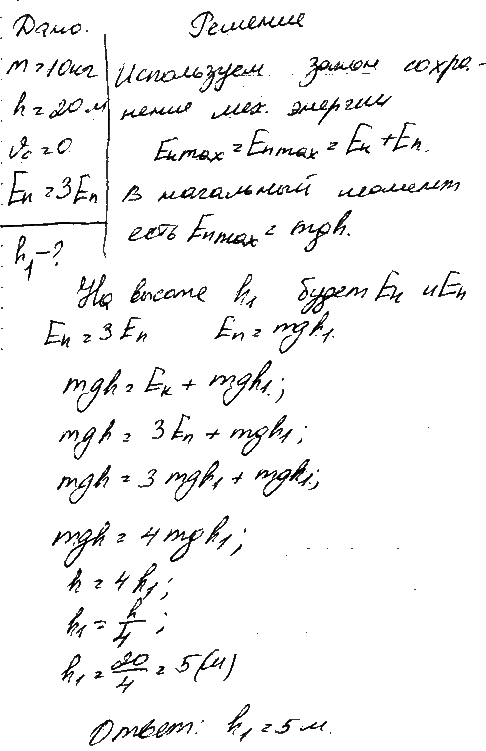 Дано.
Решение
m = 10 кг
h = 20 м
v₀ = 0
Eк = 3Eп
h₁ - ?
Используем закон сохра-
нение мех. энергии
Eкmax = Eпmax = Eк + Eп.
В начальный момент
есть Eпmax = mgh.
На высоте h₁ будет Eк и Eп
Eк = 3Eп Eп = mgh₁.
mgh = Eк + mgh₁;
mgh = 3Eп + mgh₁;
mgh = 3mgh₁ + mgh₁;
mgh = 4mgh₁;
h = 4h₁;
h₁ = h/4;
h₁ = 20/4 = 5 (м)
Ответ: h₁ = 5 м.